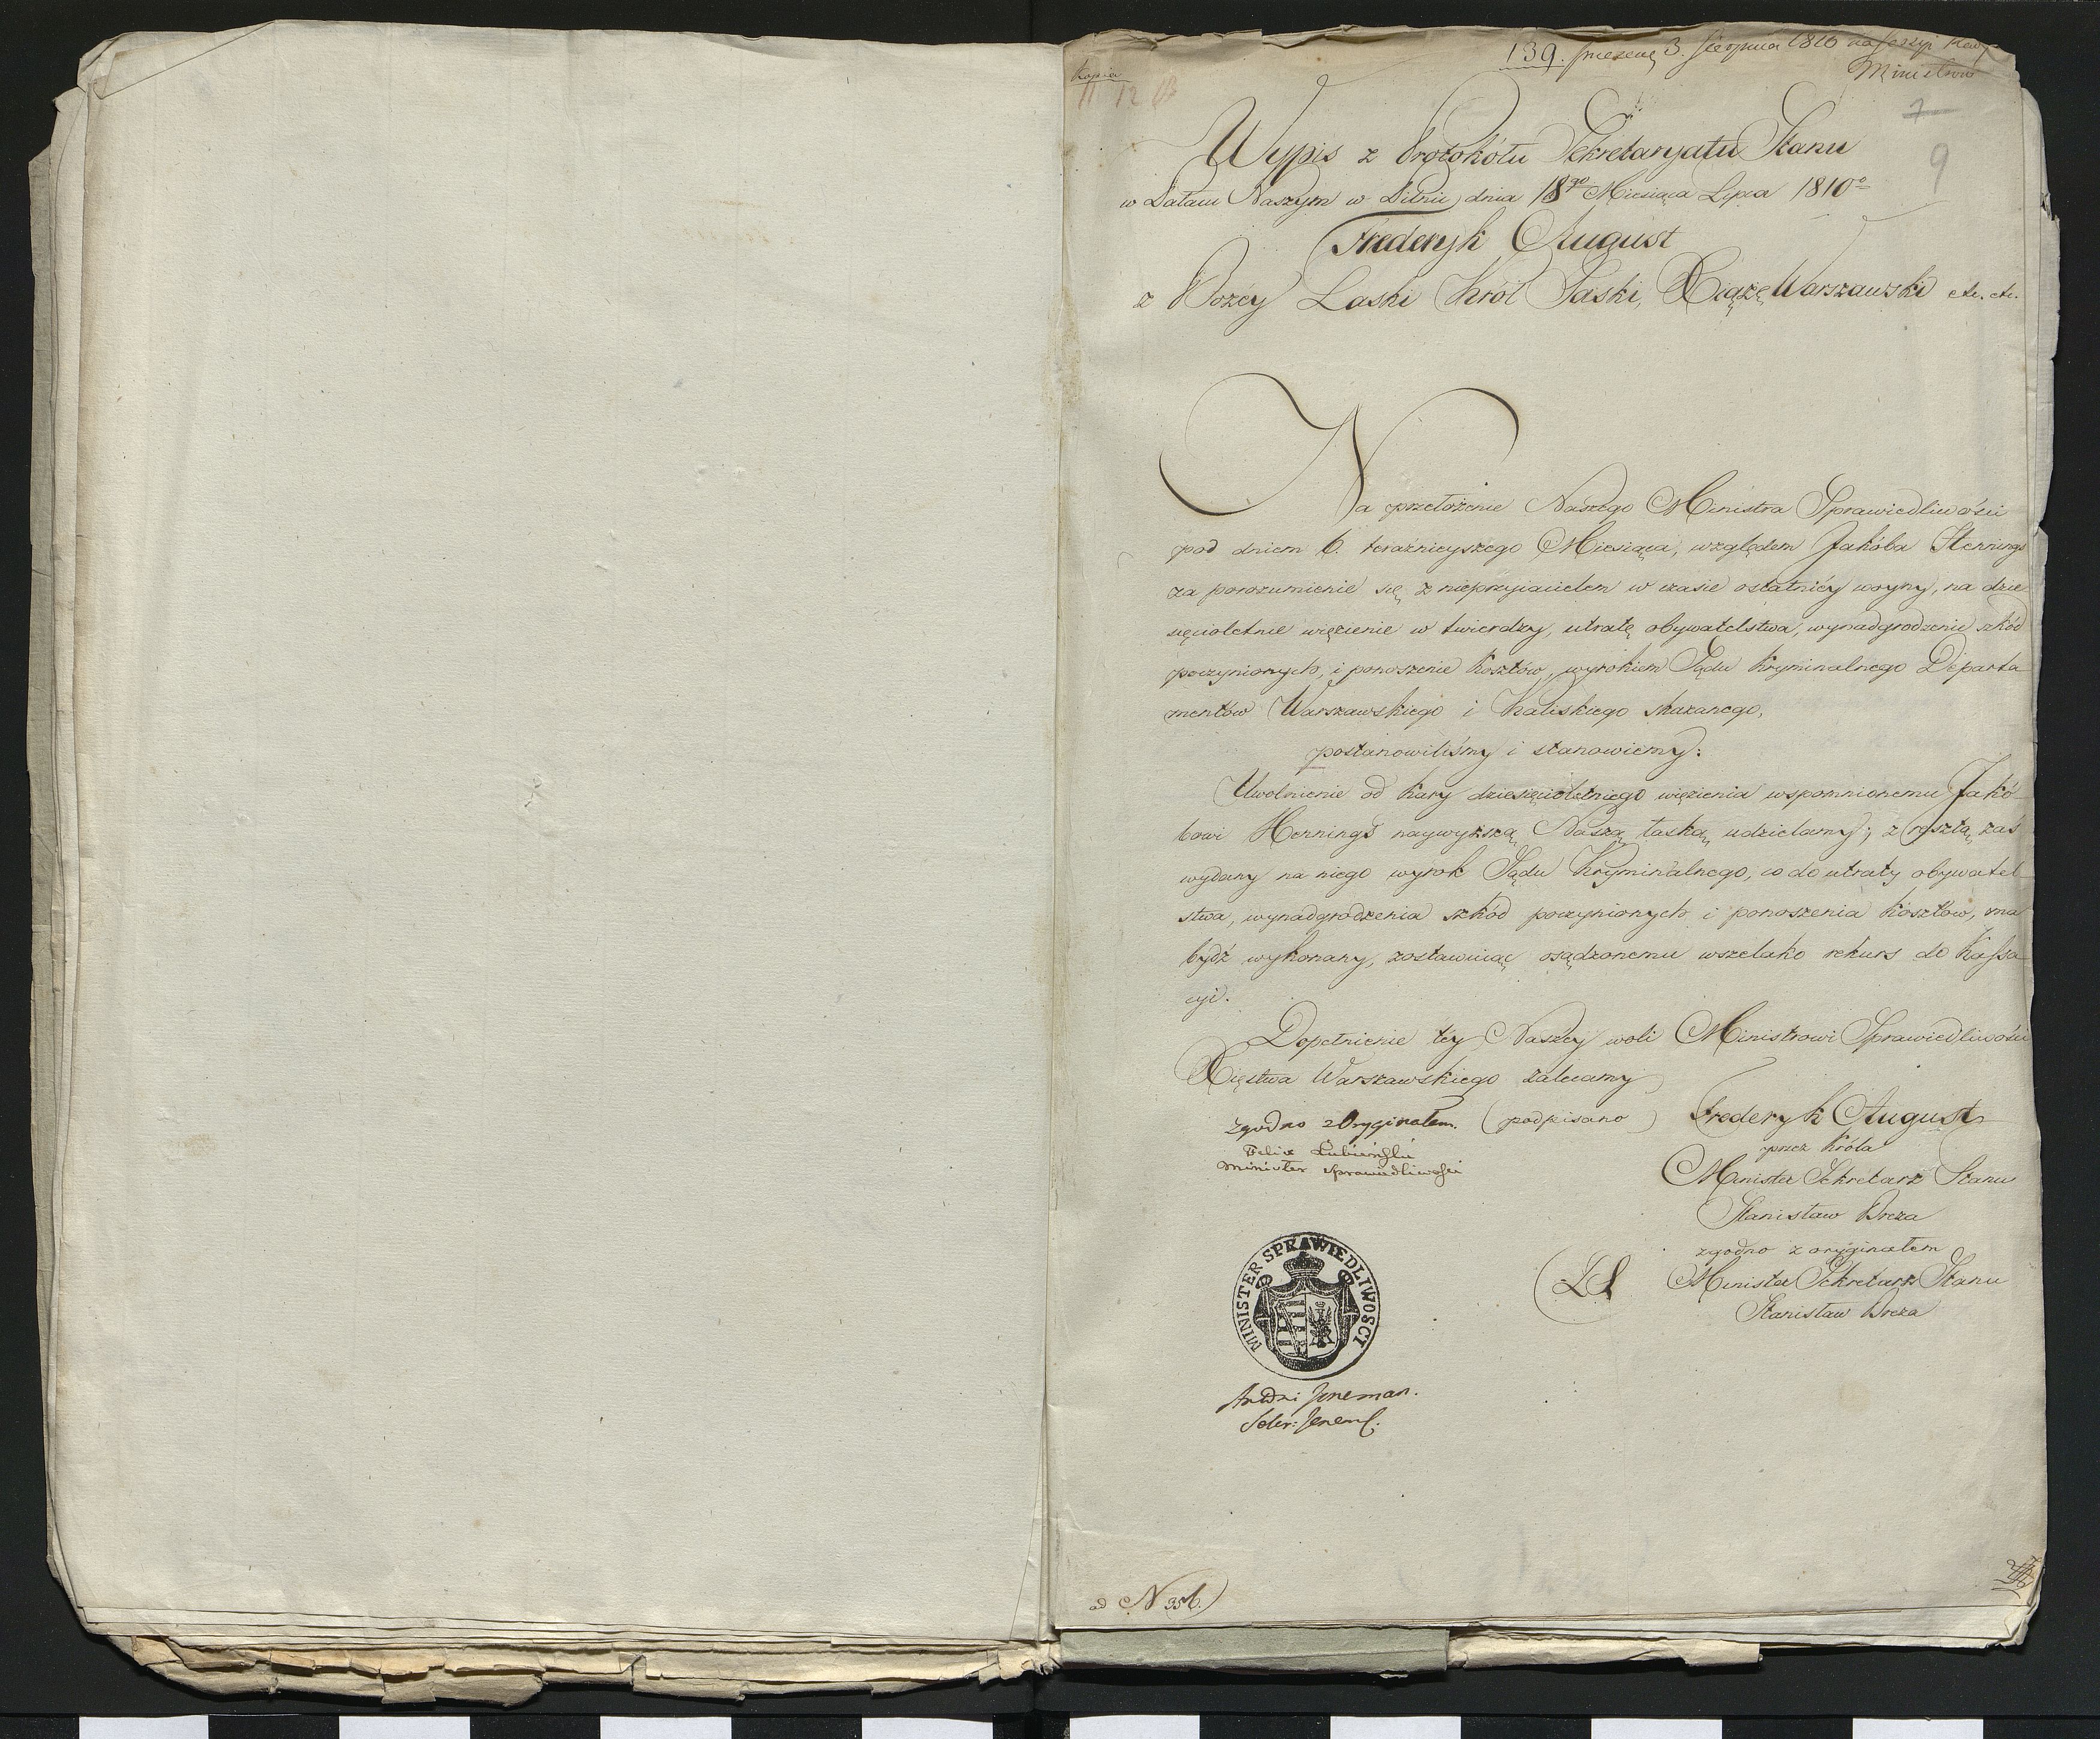 139. 3. Sierpnia 1810 na Sessyi
Ministrów
Kopia
11 12
7
9
Wypis z Protokółu Sekretaryatu Stanu
w Pałacu Naszym w Pilnic dnia 18go Miesiąca Lipca 1810o
Fryderyk August
z Bożéy Łaski Król Saski, Xiążę Warszawski etc. etc.
Na przełożenie Naszego Ministra Sprawiedliwości
pod dniem 6. teraźnieyszego Miesiąca, względem Jakóba Hennings
za porozumienie się z nieprzyiacielem w czasie ostatniéy woyny, na dzie-
sięcioletnie więzienie w twierdzy, utratę obywatelstwa, wynadgrodzenie szkód
poczynionych, i ponoszenie kosztów, wyrokiem Sądu Kryminalnego Departa
mentów Warszawskiego i Kaliskiego skazanego,
postanowiliśmy i stanowiemy:
Uwolnienie od kary dziesięcioletniego więzienia wspomnionemu Jakó-
bowi Hennings naywyższą Naszą łaską udzielamy; z resztą zaś
wydany na niego wyrok Sądu Kryminalnego, co do utraty obywatel
stwa, wynadgrodzenia szkód poczynionych i ponoszenia kosztów, ma
bydź wykonany, zostawuiąc osądzonemu wszelako rekurs do Kassa
cyi.
Dopełnienie téy Naszéy woli Ministrowi Sprawiedliwości
Xięstwa Warszawskiego zalecamy
(podpisano) Fryderyk August
przez Króla
Minister Sekretarz Stanu
Stanisław Breza
zgodno z oryginałem
(LS Minister Sekretarz Stanu
Stanisław Breza
Zgodno z Oryginałem.
Felix Łubieński
Minister Sprawiedliwości
MINISTER SPRAWIEDLIWOSCI
ad N 356.